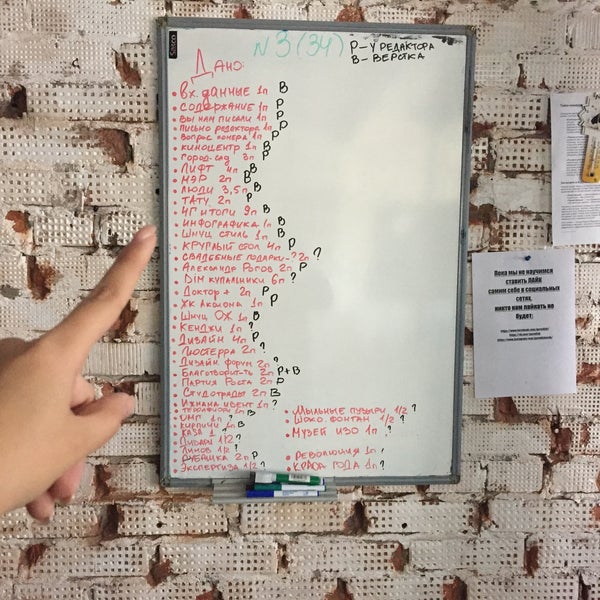 №3 (34)
Р – У РЕДАКТОРА
В – ВЕРСТКА
ДАНО:
• ВХ. ДАННЫЕ 1п В
• СОДЕРЖАНИЕ 1п Р
• ВЫ НАМ ПИСАЛИ 1п Р
• ПИСЬМО РЕДАКТОРА 1п Р
• ВОПРОС НОМЕРА 1п Р
• КИНОЦЕНТР 1п В
• ГОРОД-САД 3п Р
• ЛИФТ 4п В
• МЭР 2п В
• ЛЮДИ 3,5п В
• ТАТУ 2п Р
• ЧГ ИТОГИ 9п В
• ИНФОГРАФИКА 1п В
• ШМУЦ СТИЛЬ 1п В
• КРУГЛЫЙ СТОЛ 4п Р
• СВАДЕБНЫЕ ПОДАРКИ-? 2п ?
• АЛЕКСАНДР РОГОВ 2п Р
• DIM КУПАЛЬНИКИ 6п ?
• ДОКТОР + 2п Р
• ЖК АКСИОМА 1п Р
• ШМУЦ ОЖ 1п В
• КЕНДЖИ 1п ?
• ДИЗАЙН 4п Р
• ЛЮСТЕРРА 2п ?
• ДИЗАЙН ФОРУМ 2п ?
• БЛАГОТВОРИТ-ТЬ 2п Р+В
• ПАРТИЯ РОСТА 2п Р
• СТУДОТРЯДЫ 2п В
• 1п ?
• 1п В
• 1п ?
• КИРПИЧИ 1п В
• 1 ?
• 1/2 ?
• 1/2 ?
• РУБАШКА 2п Р
• ЭКСПЕРТИЗА 1/2 ?
• МЫЛЬНЫЕ ПУЗЫРИ 1/2 ?
• ШОКО. ФОНТАН 1/2 ?
• МУЗЕЙ ИЗО 1п ?
• РЕВОЛЮЦИЯ 1п ?
• КРАСА ГОДА 1п ?
Пока мы не научимся
ставить ЛАЙК
самим себе в социальных
сетях,
никто нам лайкать не
будет: